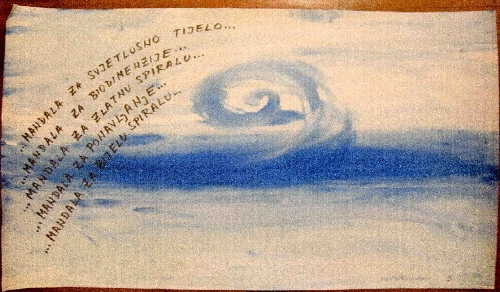 ...MANDALA ZA SVJETLOSNO TIJELO...
...MANDALA ZA BIODIMENZIJE...
...MANDALA ZA ZLATNU SPIRALU...
...MANDALA ZA PJNAVLJANJE...
...MANDALA ZA BIJELU SPIRALU...